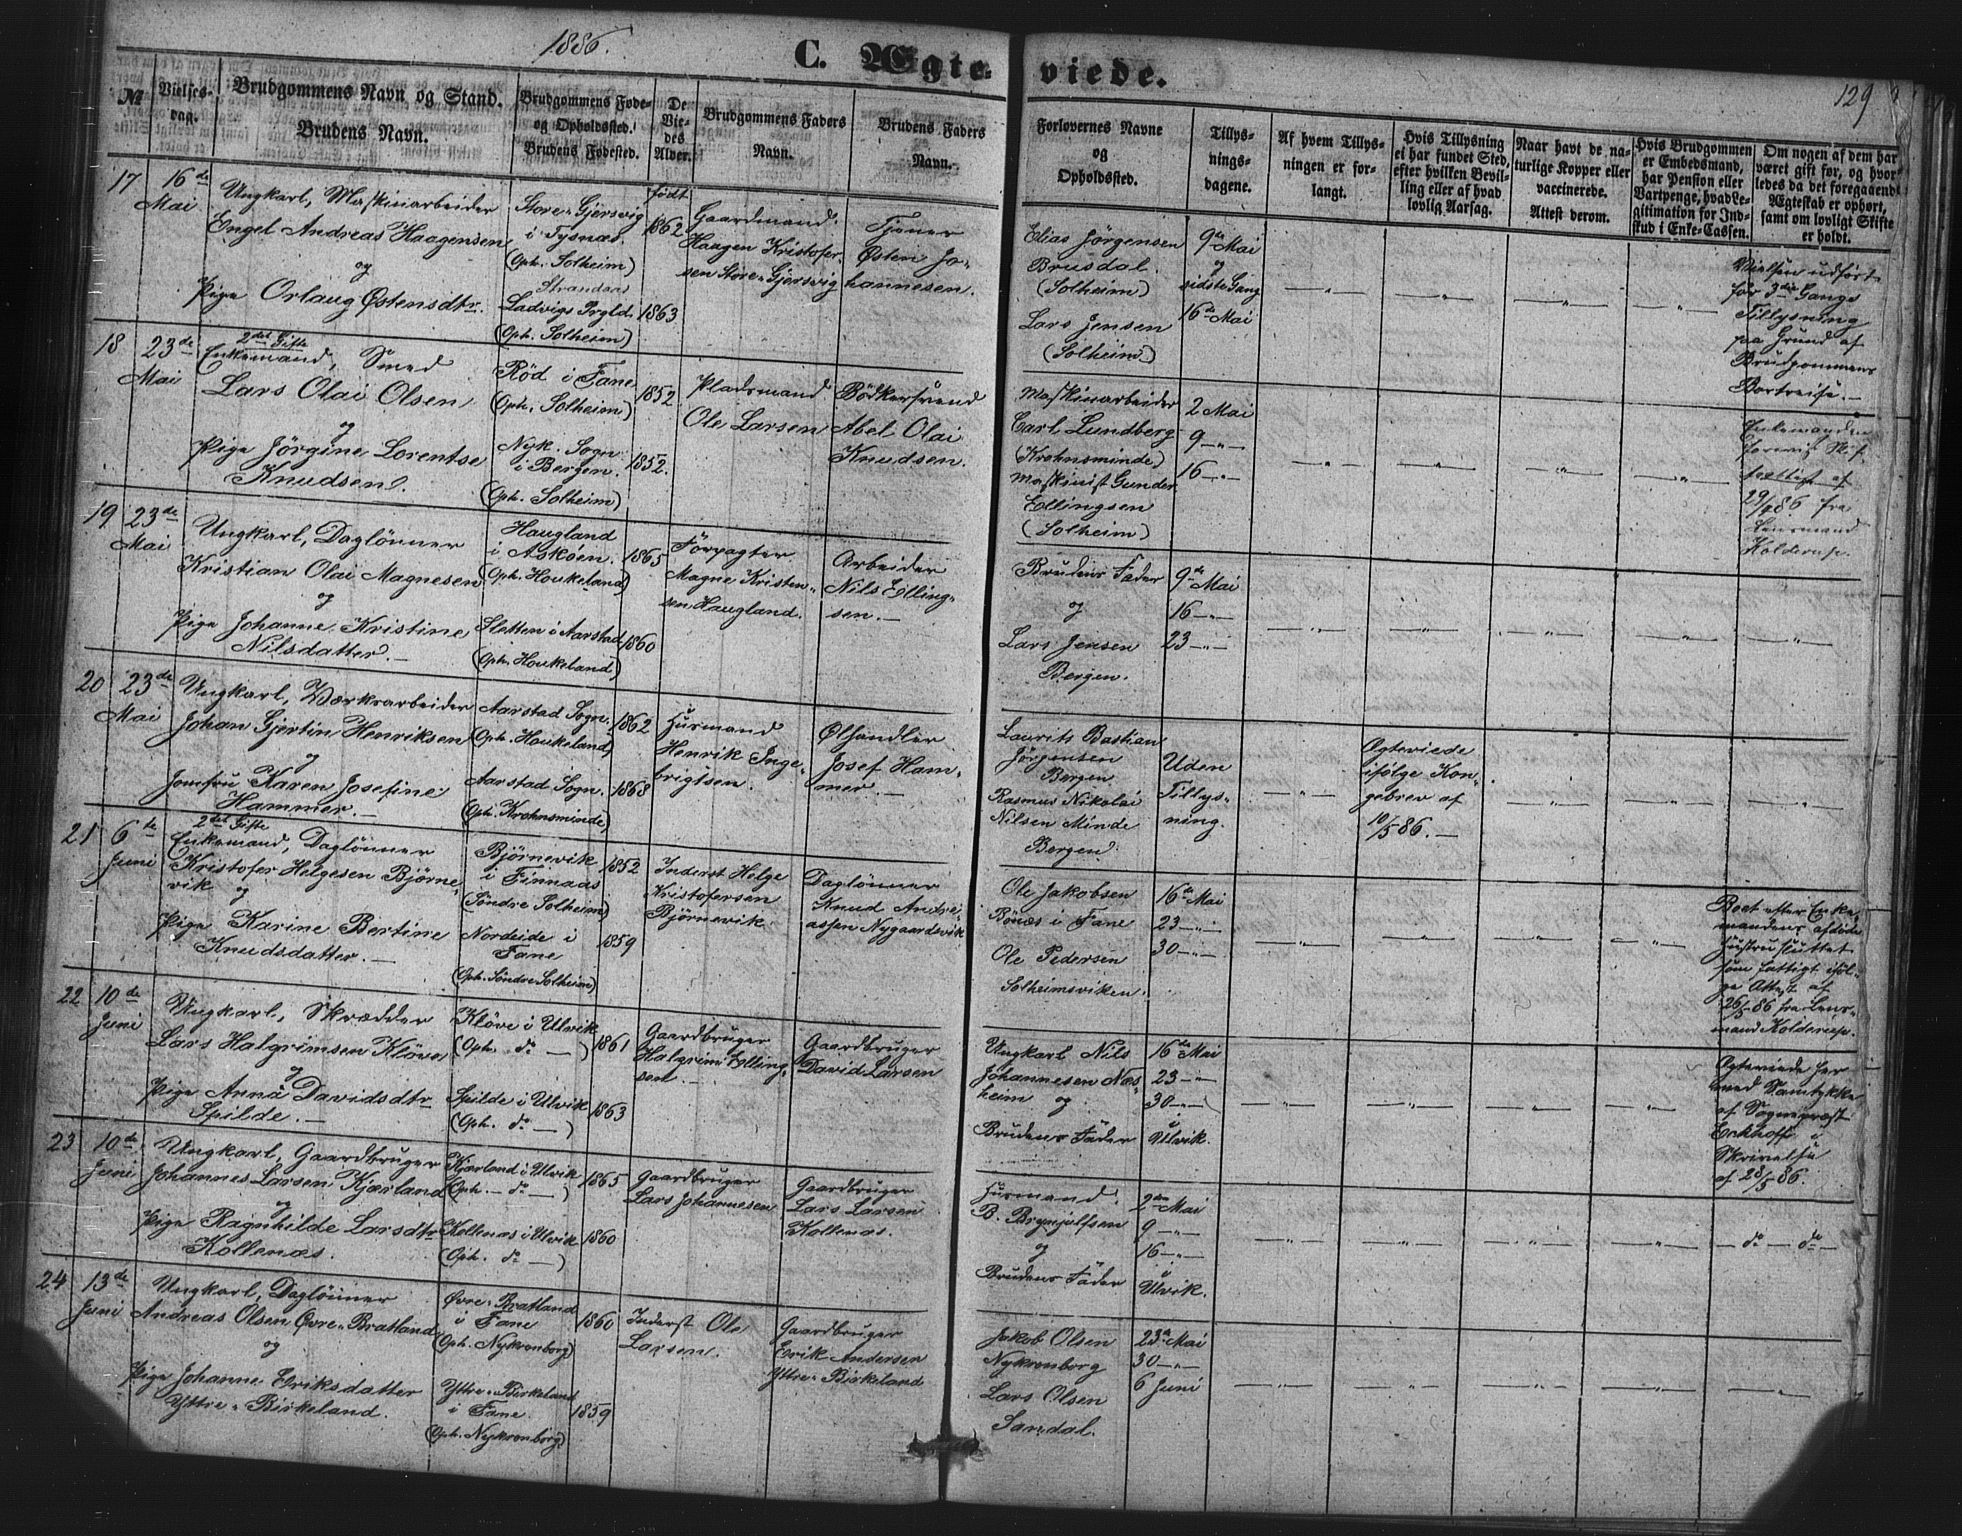 1886.
C. Ægte-
viede.
129
№
Vielses-
dag.
Brudgommens Navn og Stand.
Brudens Navn.
Brudgommens Føde-
og Opholdssted.
Brudens Fødested.
De
Vie-
des
Alder.
Brudgommens Faders
Navn.
Brudens Faders
Navn.
Forlovernes Navne
og
Opholdssted.
Tillys-
nings-
dagene.
Af hvem Tillys-
ningen er for-
langt.
Hvis Tillysning
ei har fundet Sted,
efter hvilken Bevil-
ling eller af hvad
lovlig Aarsag.
Naar havt de na-
turlige Kopper eller
vaccinerede.
Attest derom.
Hvis Brudgommen
er Embedsmand,
har Pension eller
Vartpenge, hvad Le-
gitimation for Ind-
skud i Enke-Cassen.
Om nogen af dem har
været gift før, og hvor-
ledes da det foregaaende
Ægteskab er ophørt,
samt om lovligt Skifte
er holdt.
17
16de
Mai
Ungkarl, Maskinarbeider
Engel Andreas Haagensen
og
Pige Orlaug Østensdtr.
Store-Gjersvig
i Tysnæs.
(Oph. Solheim)
Strandaas
Ladvigs Prgld.
(Oph. Solheim)
født
1862
1863
Gaardmand
Haagen Kristofer-
sen Store-Gjersvig
Tjener
Østen Jo-
hannesen.
Elias Jørgensen
Brusdal.
(Solheim)
Lars Jensen
(Solheim)
9de Mai
og
sidste Gang
16de Mai
Vielsen udført
før 3die Gangs
Tillysning
paa Grund af
Brudgommens
Bortreise.—
18
23de
Mai
2det Gifte
Enkemand, Smed
Lars Olai Olsen
og
Pige Jörgine Lorentse
Knudsen.
Rød i Fane
(Oph. Solheim)
Nyk. Sogn
i Bergen.
(Oph. Solheim)
1852
1852.
Pladsmand
Ole Larsen
Bödkersvend
Abel Olai
Knudsen.
Maskinarbeider
Carl Lundberg
(Krohnsminde)
Maskinist Gunder
Ellingsen
(Solheim)
2 Mai
9 —"—
16 —"—
Enkemanden
forevist Skif-
teattest af
fra
Lensmand
Kolderup.
19
23de
Mai
Ungkarl, Daglönner
Kristian Olai Magnesen
og
Pige Johanne Kristine
Nilsdatter.—
Haugland
i Askøen.
(Oph. Houkeland)
Sletten i Aarstad
(Oph. Houkeland)
1865
1860
Förpagter
Magne Kristen-
sen Haugland.
Arbeider
Nils Elling-
sen.—
Brudens Fader
og
Lars Jensen
Bergen.
9de Mai
16 —"—
23 —"—
20
23de
Mai
Ungkarl, Værksarbeider
Johan Gjertin Henriksen
og
Jomfru Karen Josefine
Hammer.—
Aarstad Sogn.
(Oph. Houkeland)
Aarstad Sogn.
(Oph. Krohnsminde)
1862
1868
Husmand
Henrik Inge-
brigtsen.
Ølhandler
Josef Ham-
mer.—
Laurits Bastian
Jörgensen
Bergen
Rasmus Nikolai
Nilsen Minde
Bergen.
Uden
Tillys-
ning.
Ægteviede
ifölge Kon-
gebrev af
10/5 86.—
21
6te
Juni
2det Gifte
Enkemand, Daglönner
Kristofer Helgesen Bjørne-
vik og
Pige Karine Bertine
Knudsdatter.—
Bjørnevik
i Finnaas
(Söndre Solheim)
Nordeide i
Fane
(Oph. Söndre Solheim)
1852
1859
Inderst Helge
Kristofersen
Bjørnevik.
Daglönner
Knud Andre-
assen Nygaardsvik
Ole Jakobsen
Bønæs i Fane
Ole Pedersen
Solheimsviken.
16de Mai
23 —"—
30 —"—
Boet efter Enke-
mandens afdöde
Hustru sluttet
som fattigt ifølg-
ge Attest af
26/5 86 fra Lens-
mand Kolderup.
22
10de
Juni
Ungkarl, Skrædder
Lars Halgrimsen Klöve
og
Pige Anna Davidsdtr
Spilde.—
Klöve i Ulvik
(Oph. do —)
Spilde i Ulvik
(Oph. do —)
1861
1863
Gaardbruger
Halgrim Elling-
sen.—
Gaardbruger
David Larsen
Ungkarl Nils
Johannesen Næs-
heim og
Brudens Fader
16de Mai
23 —"—
30 —"—
i
Ulvik.
Ægteviede her
med Samtykke
af Sognepræst
Eckhoff i
Skrivelse
af 28/5 86.
23
10de
Juni
Ungkarl, Gaardbruger
Johannes Larsen Kjærland
og
Pige Ragnhilde Larsdtr
Kollenæs.
Kjærland i Ulvik
(Oph. — do —)
Kollenæs i Ulvik
(Oph. do —)
1865
1860
Gaardbruger
Lars Johannesen
Gaardbruger
Lars Larsen
Kollenæs.
Husmand
B. Brynjulfsen
og
Brudens Fader
2den Mai
9 —"—
16 —"—
i
Ulvik.
— do — do —
24
13de
Juni
Ungkarl, Daglönner
Andreas Olsen Øvre-Bratland
og
Pige Johanne Eriksdatter
Yttre-Birkeland.
Øvre-Bratland
i Fane
(Oph. Nykronborg)
Yttre-Birkeland
i Fane.
(Oph. Nykronborg)
1860
1859
Inderst Ole
Larsen.
Gaardbruger
Erik Andersen
Yttre-Birkeland
Jakob Olsen
Nykronborg
Lars Olsen
Sandal.
23de Mai
30 —"—
6 Juni